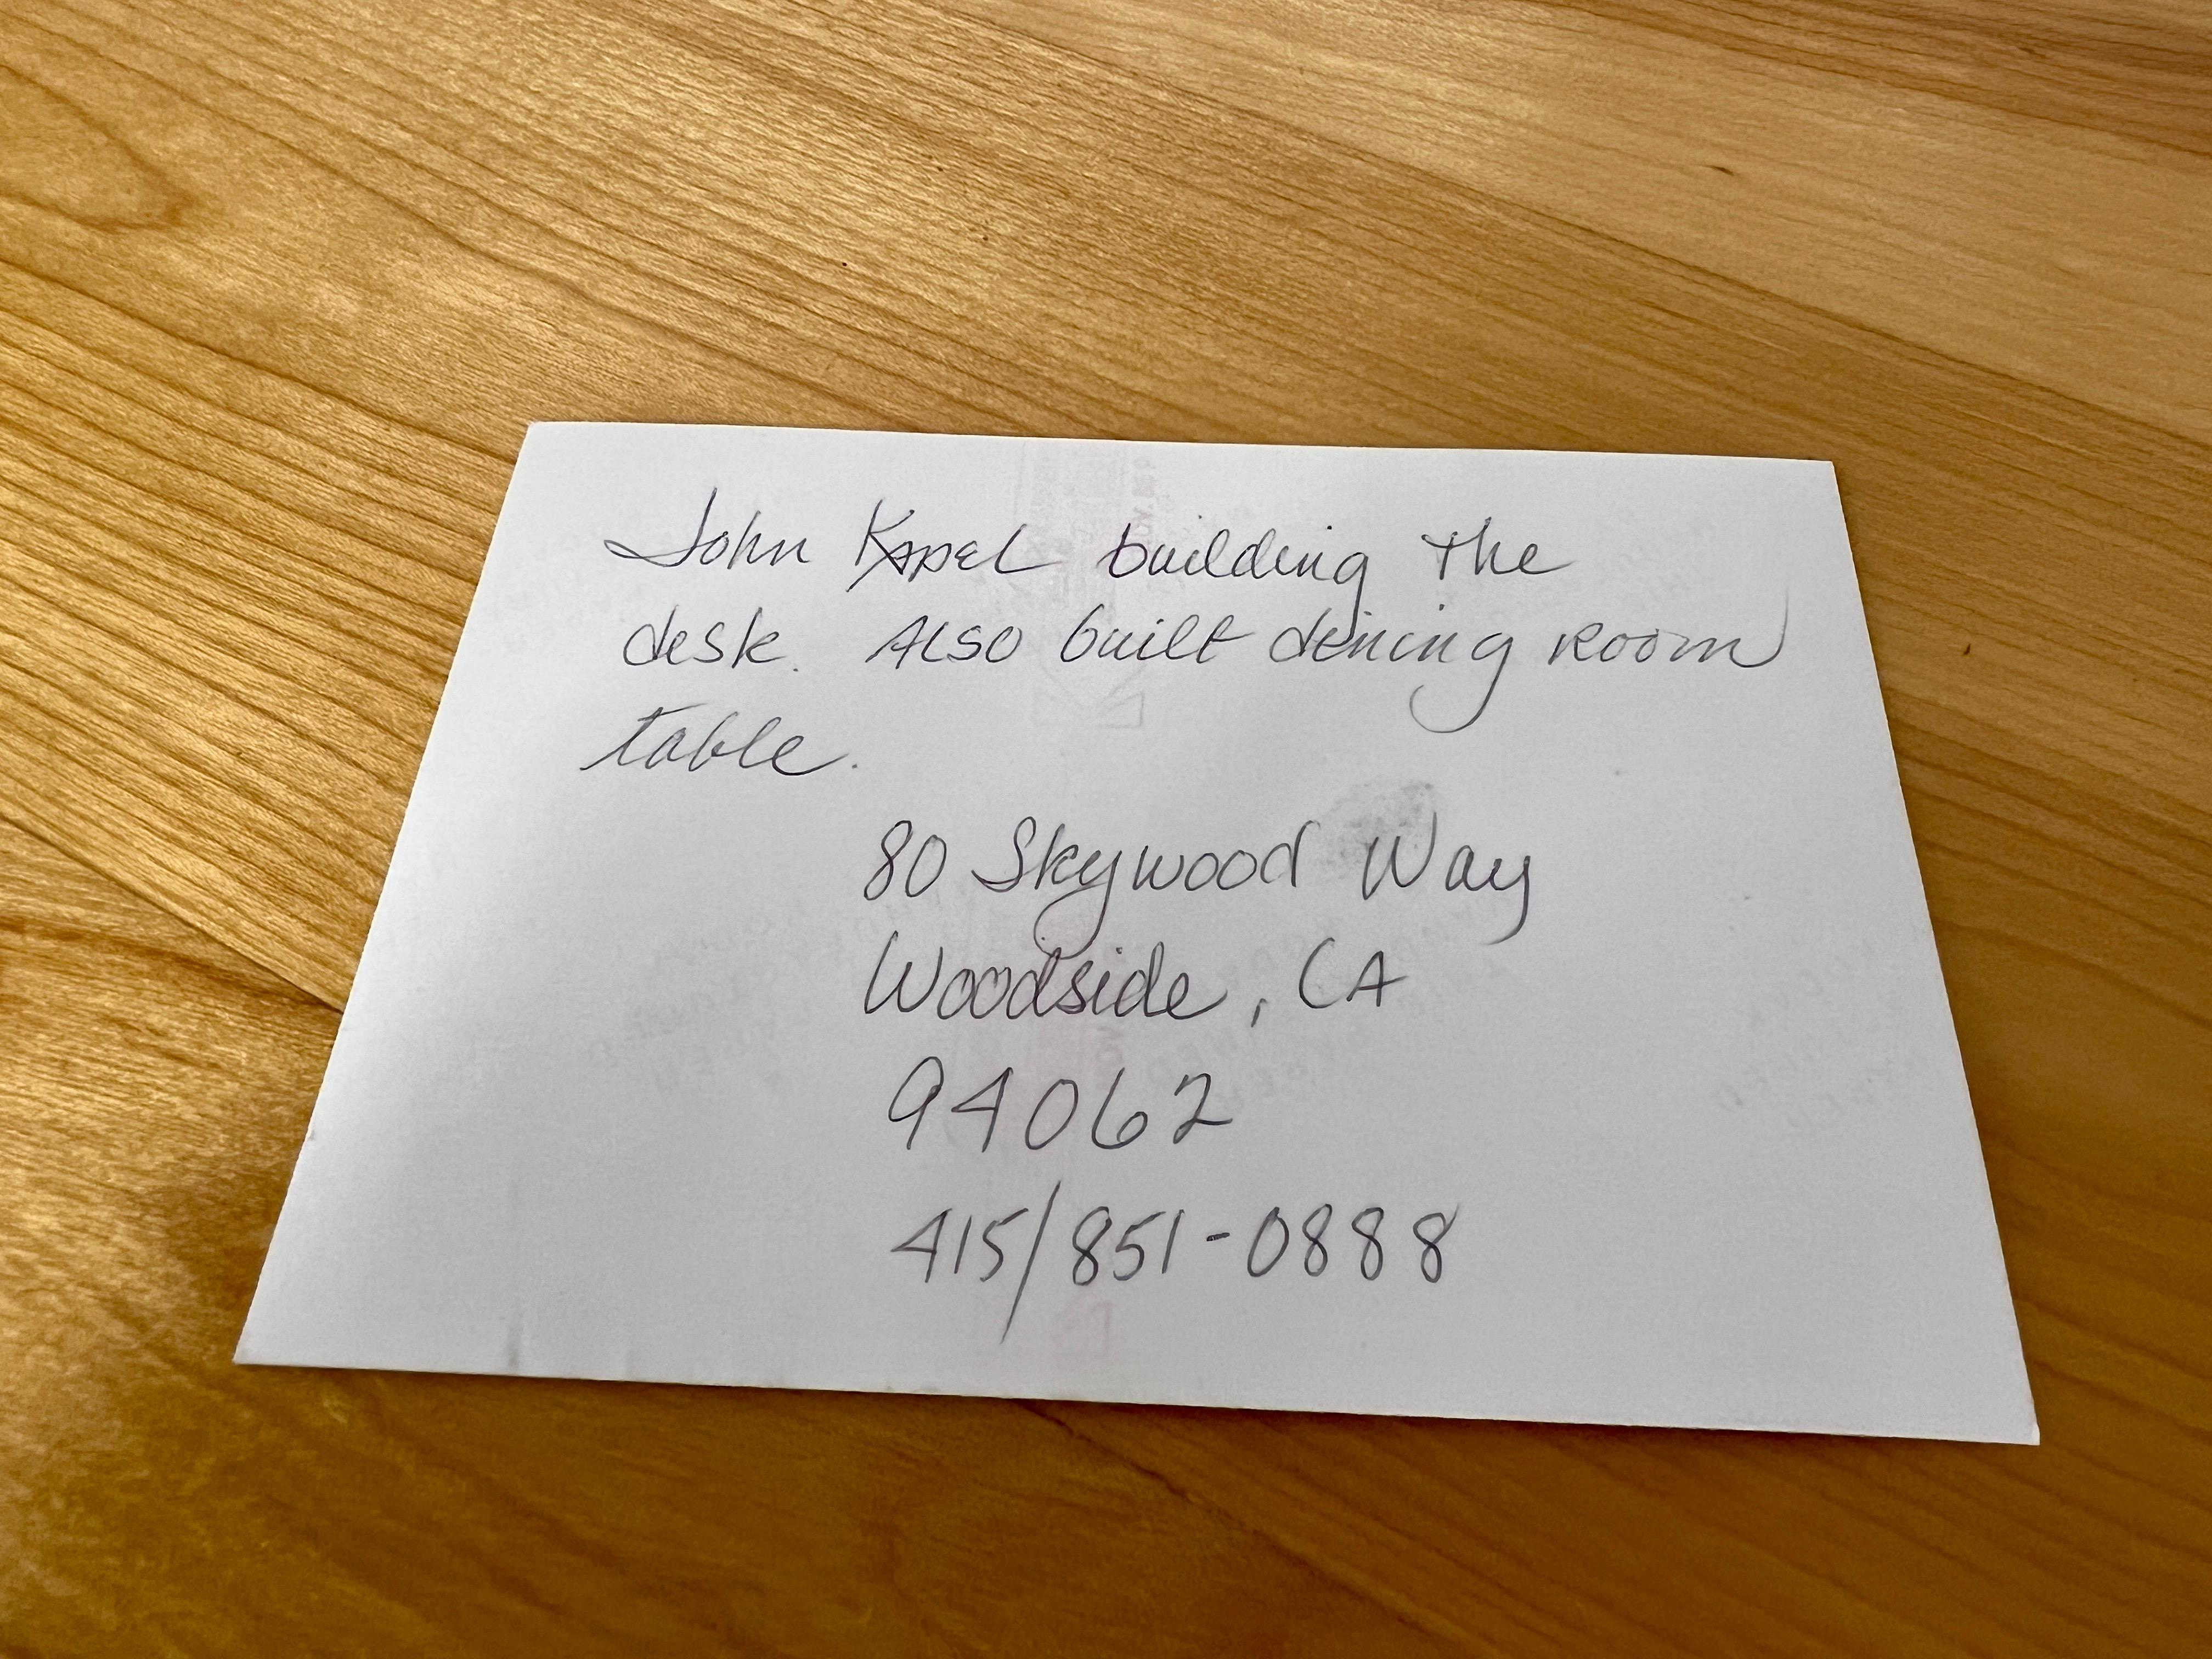 John Kapel building the
desk. Also built dining room
table.
80 Skywood Way
Woodside, CA
94062
415/851-0888